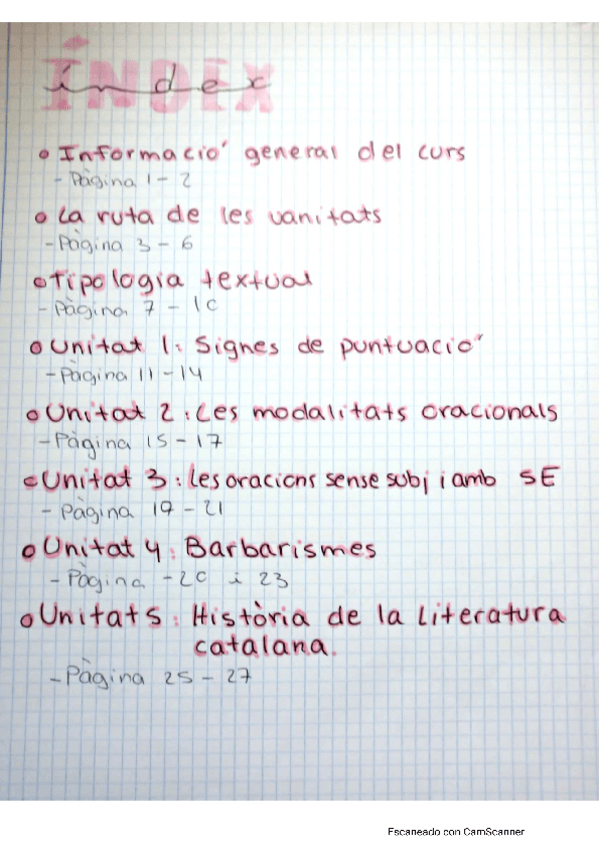 ÍNDEX
índex
• Informació general del curs
- Pàgina 1 - 2
• La ruta de les vanitats
- Pàgina 3 - 6
• Tipologia textual
- Pàgina 7 - 10
• Unitat 1: Signes de puntuació
- Pàgina 11 - 14
• Unitat 2: Les modalitats oracionals
- Pàgina 15 - 17
• Unitat 3: Les oracions sense subj i amb SE
- Pàgina 19 - 21
• Unitat 4: Barbarismes
- Pàgina - 20 i 23
• Unitat 5: Història de la literatura
catalana.
- Pàgina 25 - 27
Escaneado con CamScanner